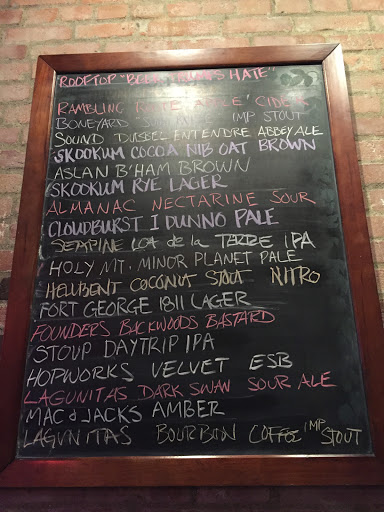 ROOFTOP "BEER TRUMPS HATE"
RAMBLING ROUTE 'APPLE' CIDER
BONEYARD IMP STOUT
SOUND DUBBEL ENTENDRE ABBEY ALE
SKOOKUM COCOA NIB OAT BROWN
ASLAN B'HAM BROWN
SKOOKUM RYE LAGER
ALMANAC NECTARINE SOUR
CLOUDBURST I DUNNO PALE
SERAPINE LOT de la TERRE IPA
HOLY MT. MINOR PLANET PALE
HELLBENT COCONUT STOUT NITRO
FORT GEORGE 1811 LAGER
FOUNDERS BACKWOODS BASTARD
STOUP DAYTRIP IPA
HOPWORKS VELVET ESB
LAGUNITAS DARK SWAN SOUR ALE
MAC & JACKS AMBER
LAGUNITAS BOURBON COFFEE IMP STOUT